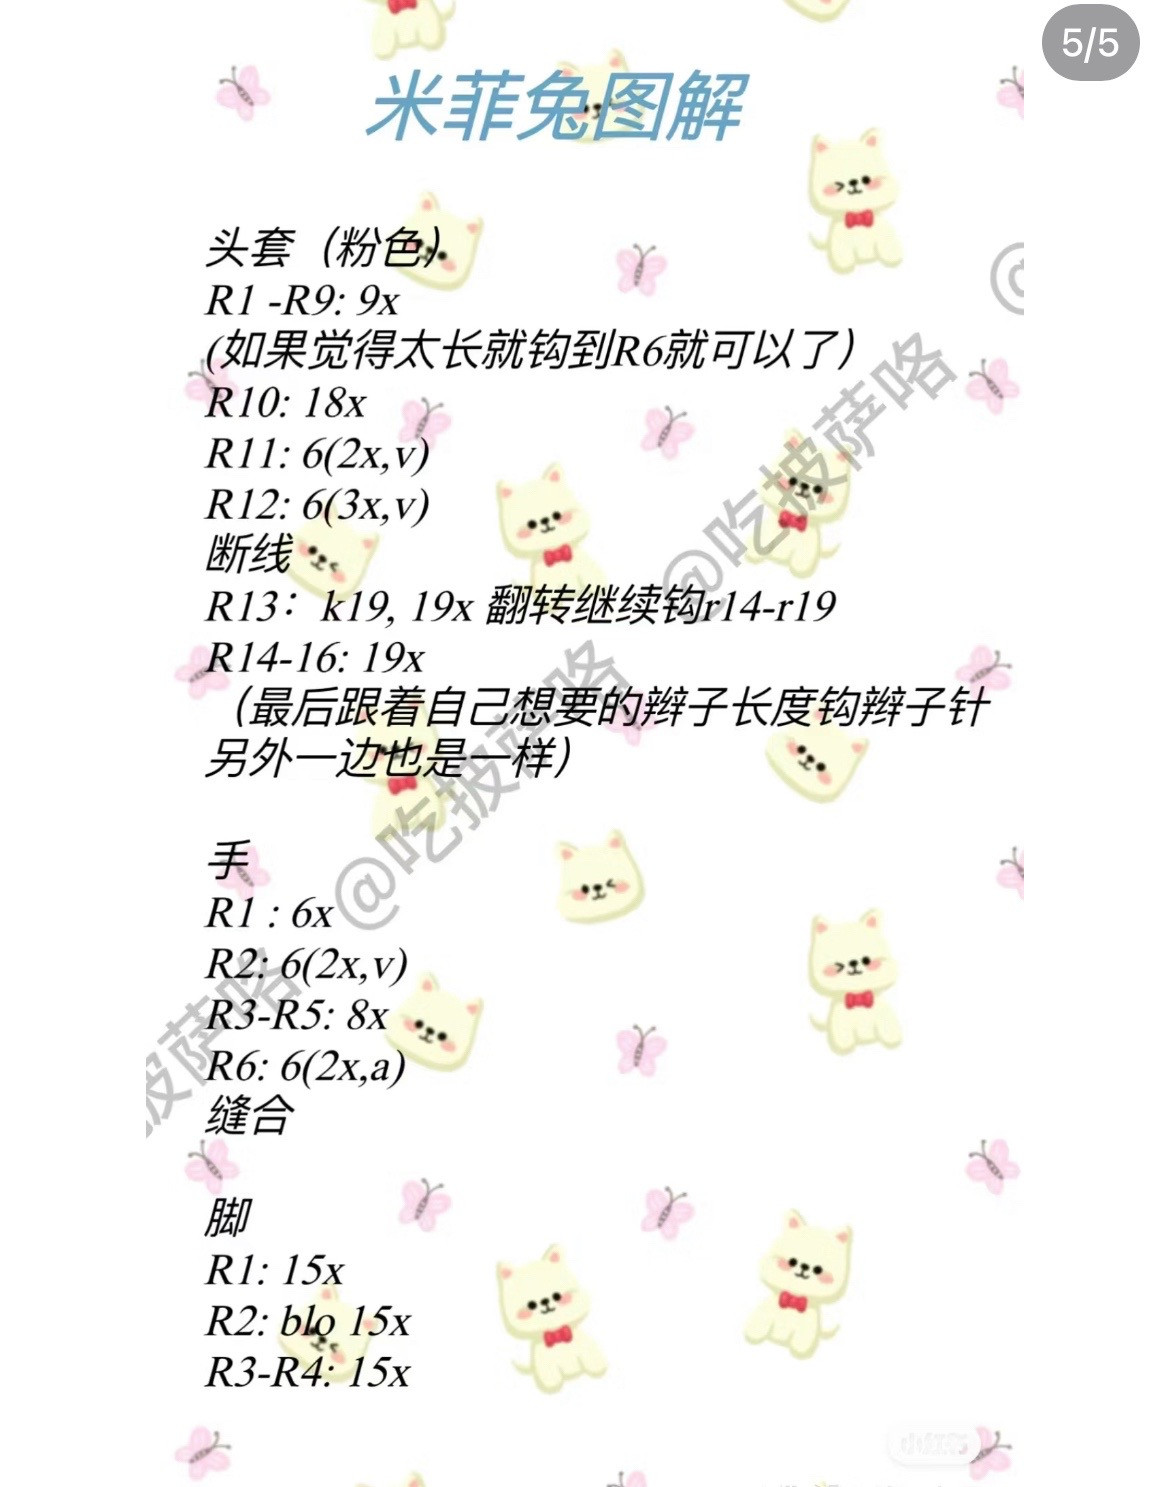 5/5
米菲兔图解
头套（粉色）
R1 -R9: 9x
(如果觉得太长就钩到R6就可以了）
R10: 18x
R11: 6(2x,v)
R12: 6(3x,v)
断线
R13：k19, 19x 翻转继续钩r14-r19
R14-16: 19x
（最后跟着自己想要的辫子长度钩辫子针
另外一边也是一样）
手
R1 : 6x
R2: 6(2x,v)
R3-R5: 8x
R6: 6(2x,a)
缝合
脚
R1: 15x
R2: blo 15x
R3-R4: 15x
@吃披萨咯
@吃披萨咯
披萨咯
@
小红书